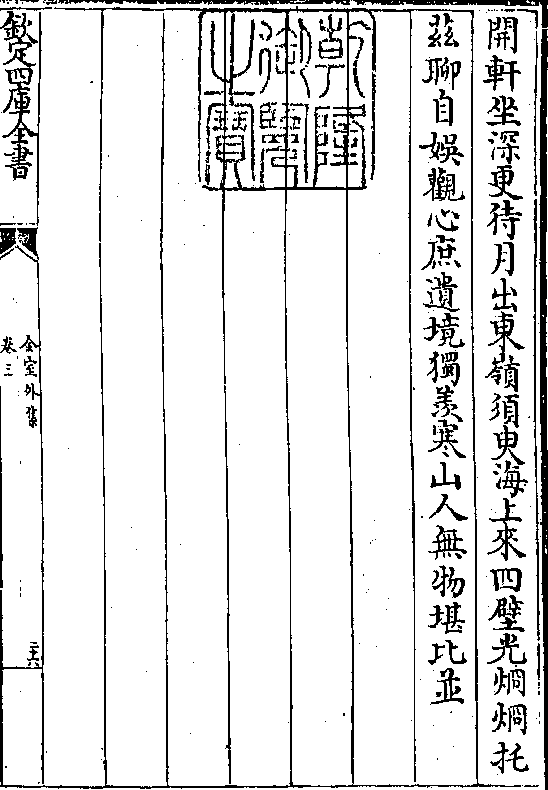 開軒坐深更待月出東嶺須臾海上來四壁光烱烱托
茲聊自娛觀心庶遺境獨羨寒山人無物堪比並
乾隆
御覽
之寶
欽定四庫全書
全室外集
卷三
二十六